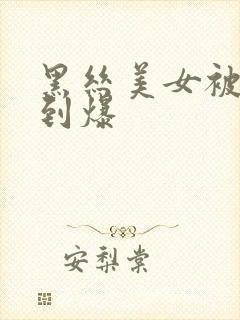 黑丝美女被
到爆
安梨棠